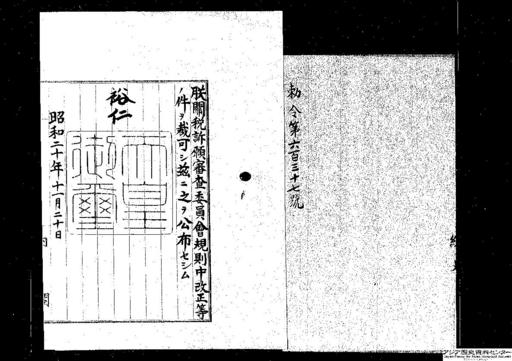 勅令第六百三十七號
朕關稅訴願審査委員會規則中改正等
ノ件ヲ裁可シ茲ニ之ヲ公布セシム
裕仁
天皇御璽
昭和二十年十一月二十日
內閣
アジア歴史資料センター